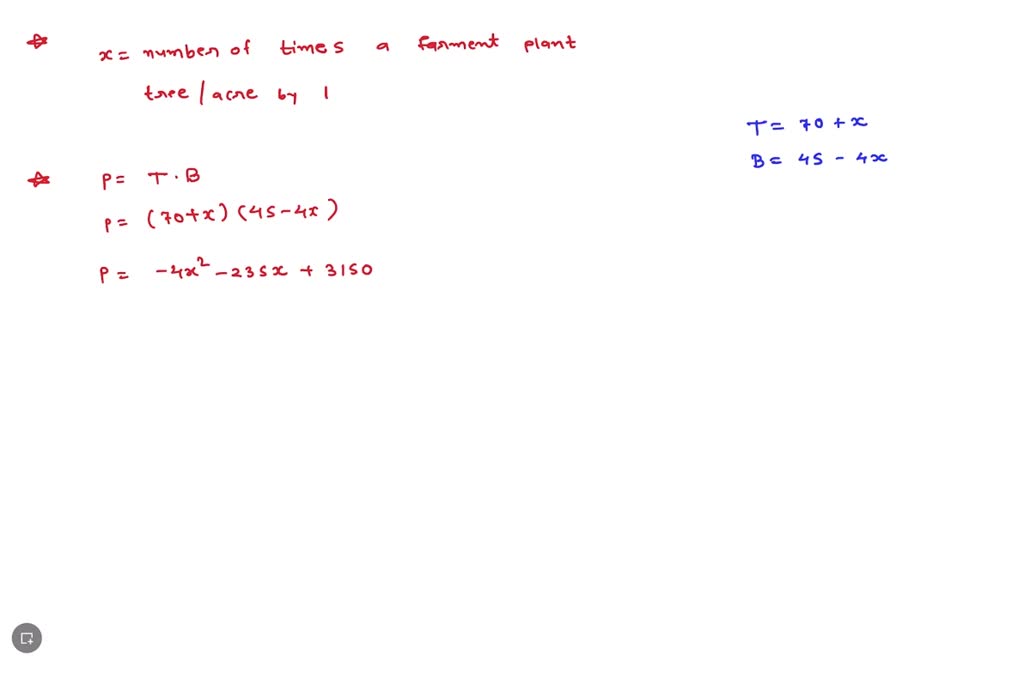 x = number of times a farment plant
tree / acre by 1
T = 70 + x
B = 45 - 4x
P = T · B
P = (70+x) (45-4x)
P = -4x² - 235x + 3150